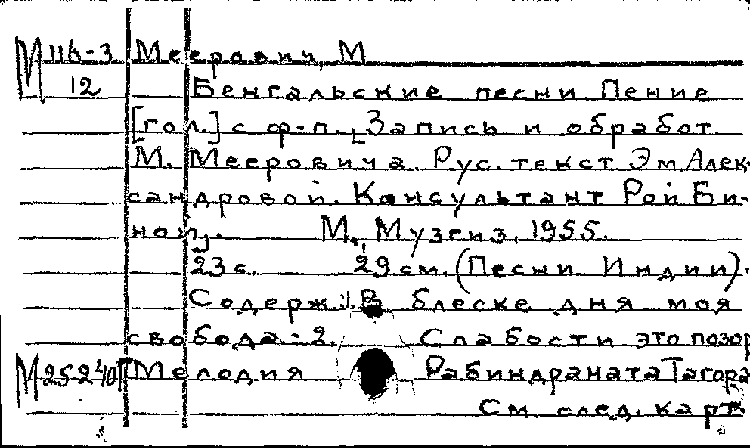 М 116-3 Меерович, М
12 Бенгальские песни Пение
[гол.] с ф-п. [Запись и обработ.
М. Мееровича. Рус. текст Эм Алек-
сандровой. Консультант Рой Би-
ной]. М., Музгиз, 1955.
23 с. 29 см. (Песни Индии).
Содерж.: В блеске дня моя
свобода.-2. Слабости это позор
Мелодия Рабиндраната Тагора
См. след. карт